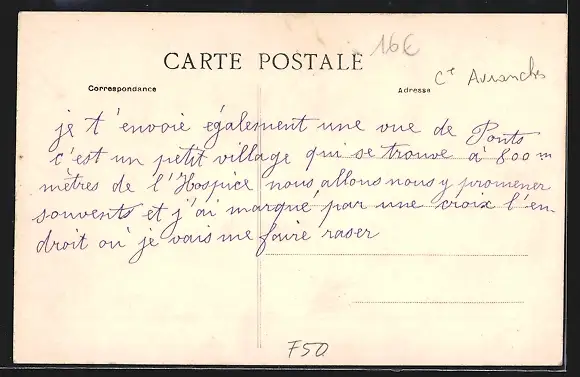 16€
CARTE POSTALE
Cᵗ Avranches
Correspondance
Adresse
je t'envoie également une vue de Ponts
c'est un petit village qui se trouve à 800 m
mètres de l'Hospice nous allons nous y promener
souvents et j'ai marqué par une croix l'en-
droit où je vais me faire raser
F50